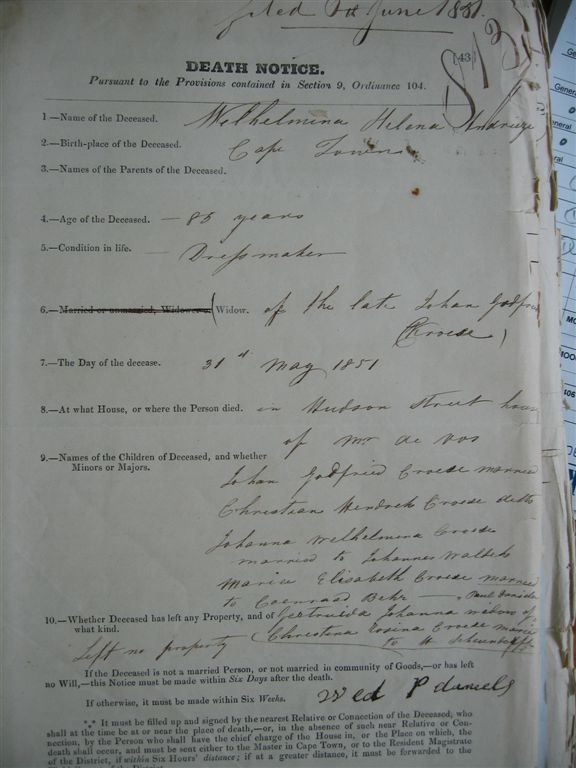 filed 5th June 1851.
[43]
DEATH NOTICE.
Pursuant to the Provisions contained in Section 9, Ordinance 104.
1.—Name of the Deceased. Welhelmina Helena
2.—Birth-place of the Deceased. Cape Town
3.—Names of the Parents of the Deceased.
4.—Age of the Deceased. — 85 years
5.—Condition in life. — Dressmaker
6.—Married or unmarried, Widower or (Widow. of the late Johan Godfried
Croese)
7.—The Day of the decease. 31st May 1851
8.—At what House, or where the Person died. in Hudson Street house
of Mr de Vos
9.—Names of the Children of Deceased, and whether
Minors or Majors.
Johan Godfried Croese married
Christian Hendrik Croese ditto
Johanna Welhelmina Croese
married to Johannes
Maria Elisabeth Croese married
to Coenraad Behr —
10.—Whether Deceased has left any Property, and of
what kind.
Gertruida Johanna widow of Paul Daniels
Christina Rosina Croese married
to H
Left no property
If the Deceased is not a married Person, or not married in community of Goods,—or has left
no Will,—this Notice must be made within Six Days after the death.
If otherwise, it must be made within Six Weeks.
Wed P daniels
*** It must be filled up and signed by the nearest Relative or Connection of the Deceased, who
shall at the time be at or near the place of death,—or, in the absence of such near Relative or Con-
nection, by the Person who shall have the chief charge of the House in, or the Place on which, the
death shall occur, and must be sent either to the Master in Cape Town, or to the Resident Magistrate
of the District, if within Six Hours' distance; if at a greater distance, it must be forwarded to the